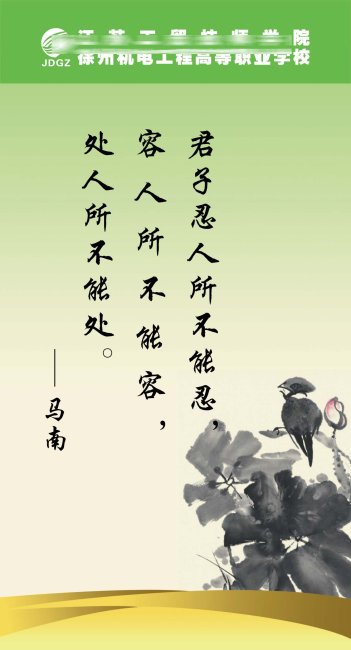 JDGZ
徐州机电工程高等职业学校
君子忍人所不能忍，
容人所不能容，
处人所不能处。
——马南